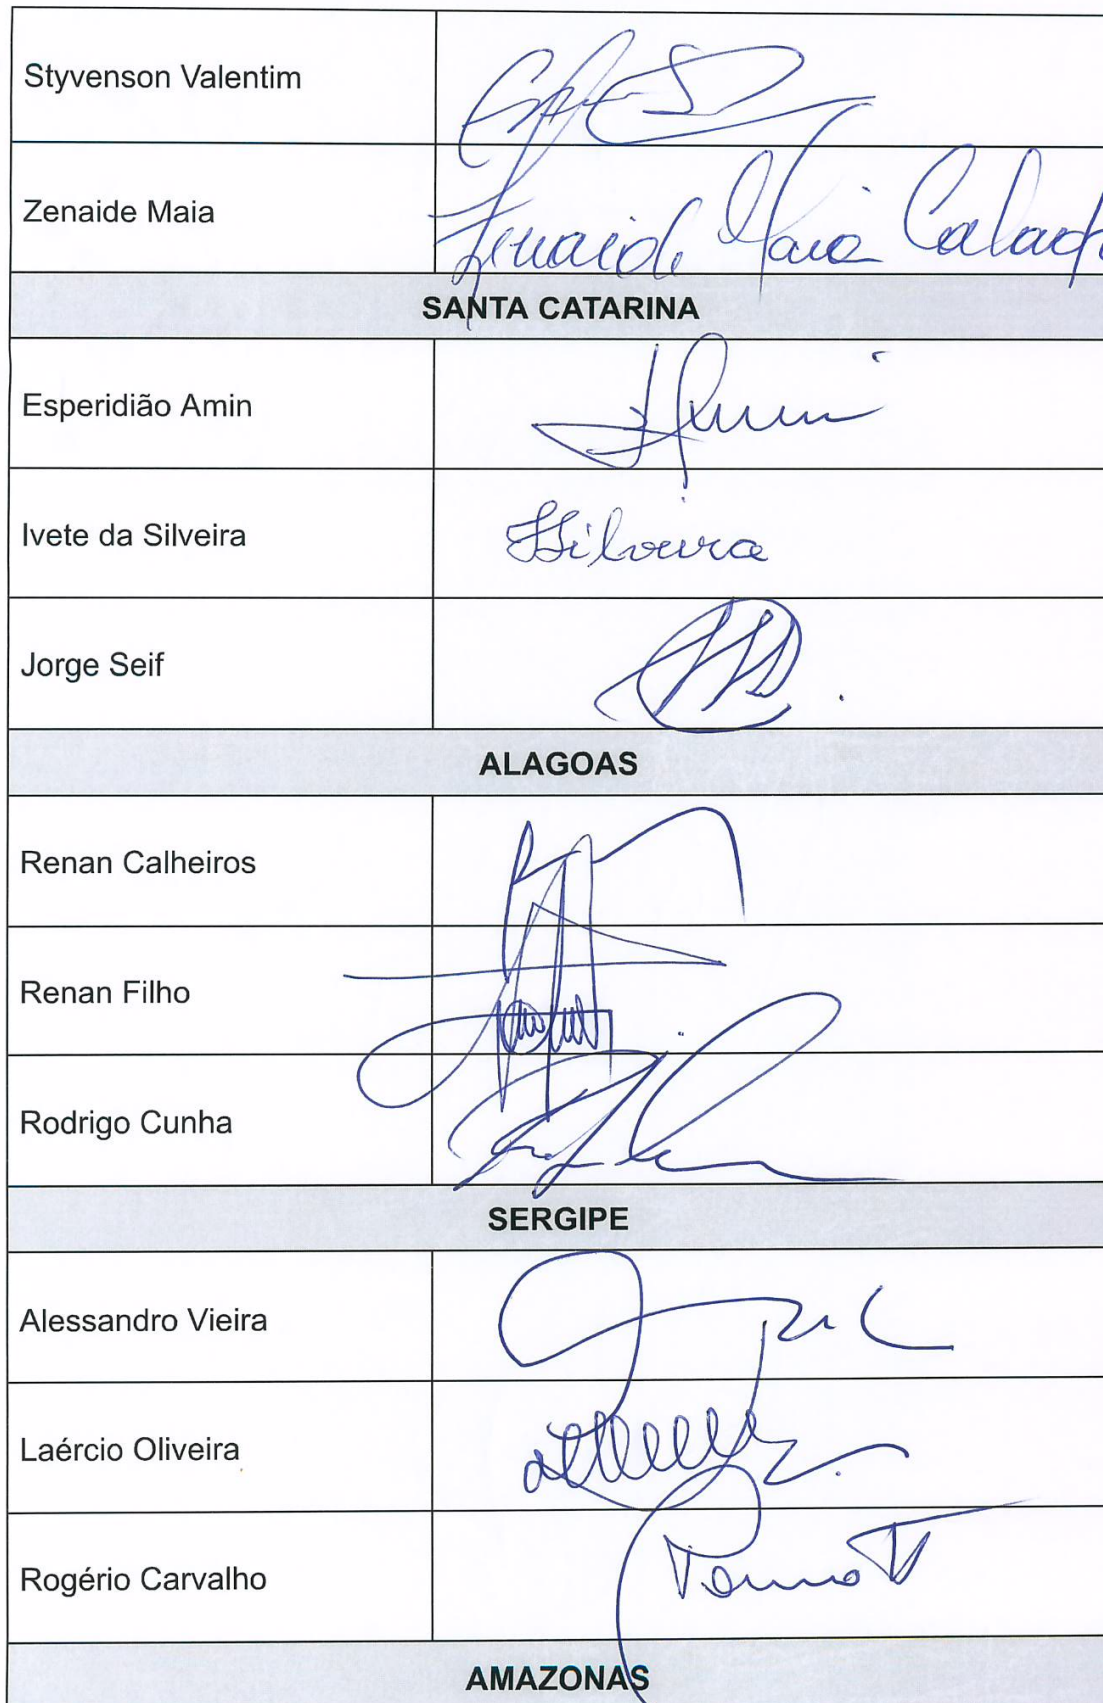 Styvenson Valentim
Zenaide Maia Zenaide Maia Calado
SANTA CATARINA
Esperidião Amin Amin
Ivete da Silveira ISilveira
Jorge Seif
ALAGOAS
Renan Calheiros
Renan Filho
Rodrigo Cunha
SERGIPE
Alessandro Vieira
Laércio Oliveira
Rogério Carvalho
AMAZONAS